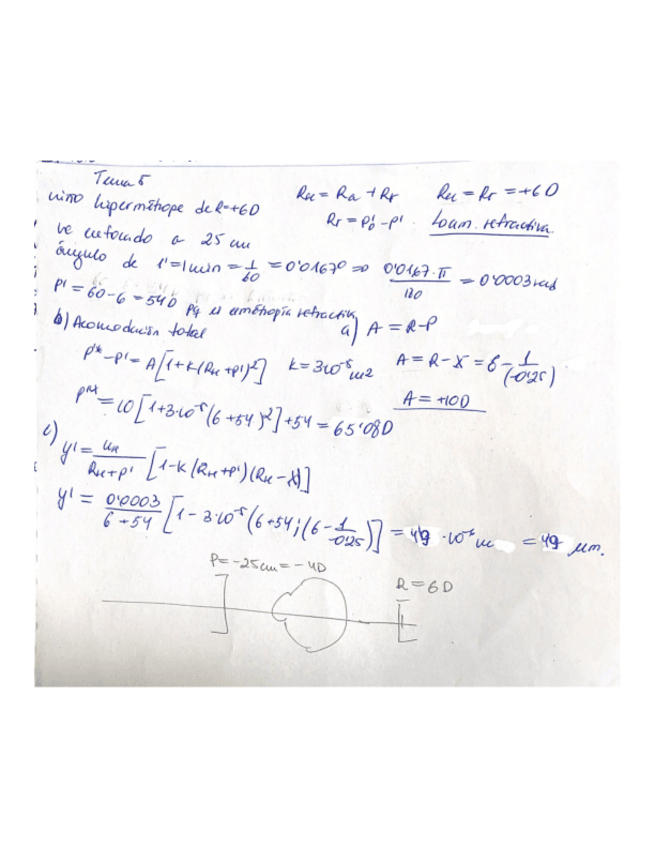 Tema 5
niño hipermétrope de R=+6D
RH = Ra + Rr   RH = Rr = +6D
Rr = P'o - P'   Loam. refractiva.
ve enfocado a 25 cm
ángulo de 1' = 1min = 1/60 = 0'0167º => 0'0167·π/180 = 0'0003 rad
P' = 60-6 = 54D pq es ametropía refractiva
b) Acomodación total
a) A = R-P
P'* - P' = A[1+K(RH+P')²]   K = 3·10⁻⁵ m2
A = R-X = 6 - 1/(-0'25)
A = +10D
P'* = 10[1+3·10⁻⁵(6+54)²]+54 = 65'08D
c)
y' = uH/(RH+P') [1-K(RH+P')(RH-X)]
y' = 0'0003/(6+54) [1-3·10⁻⁵(6+54)(6-1/-0'25)] = 49·10⁻⁶ m = 49 μm.
P = -25cm = -4D
R = 6D